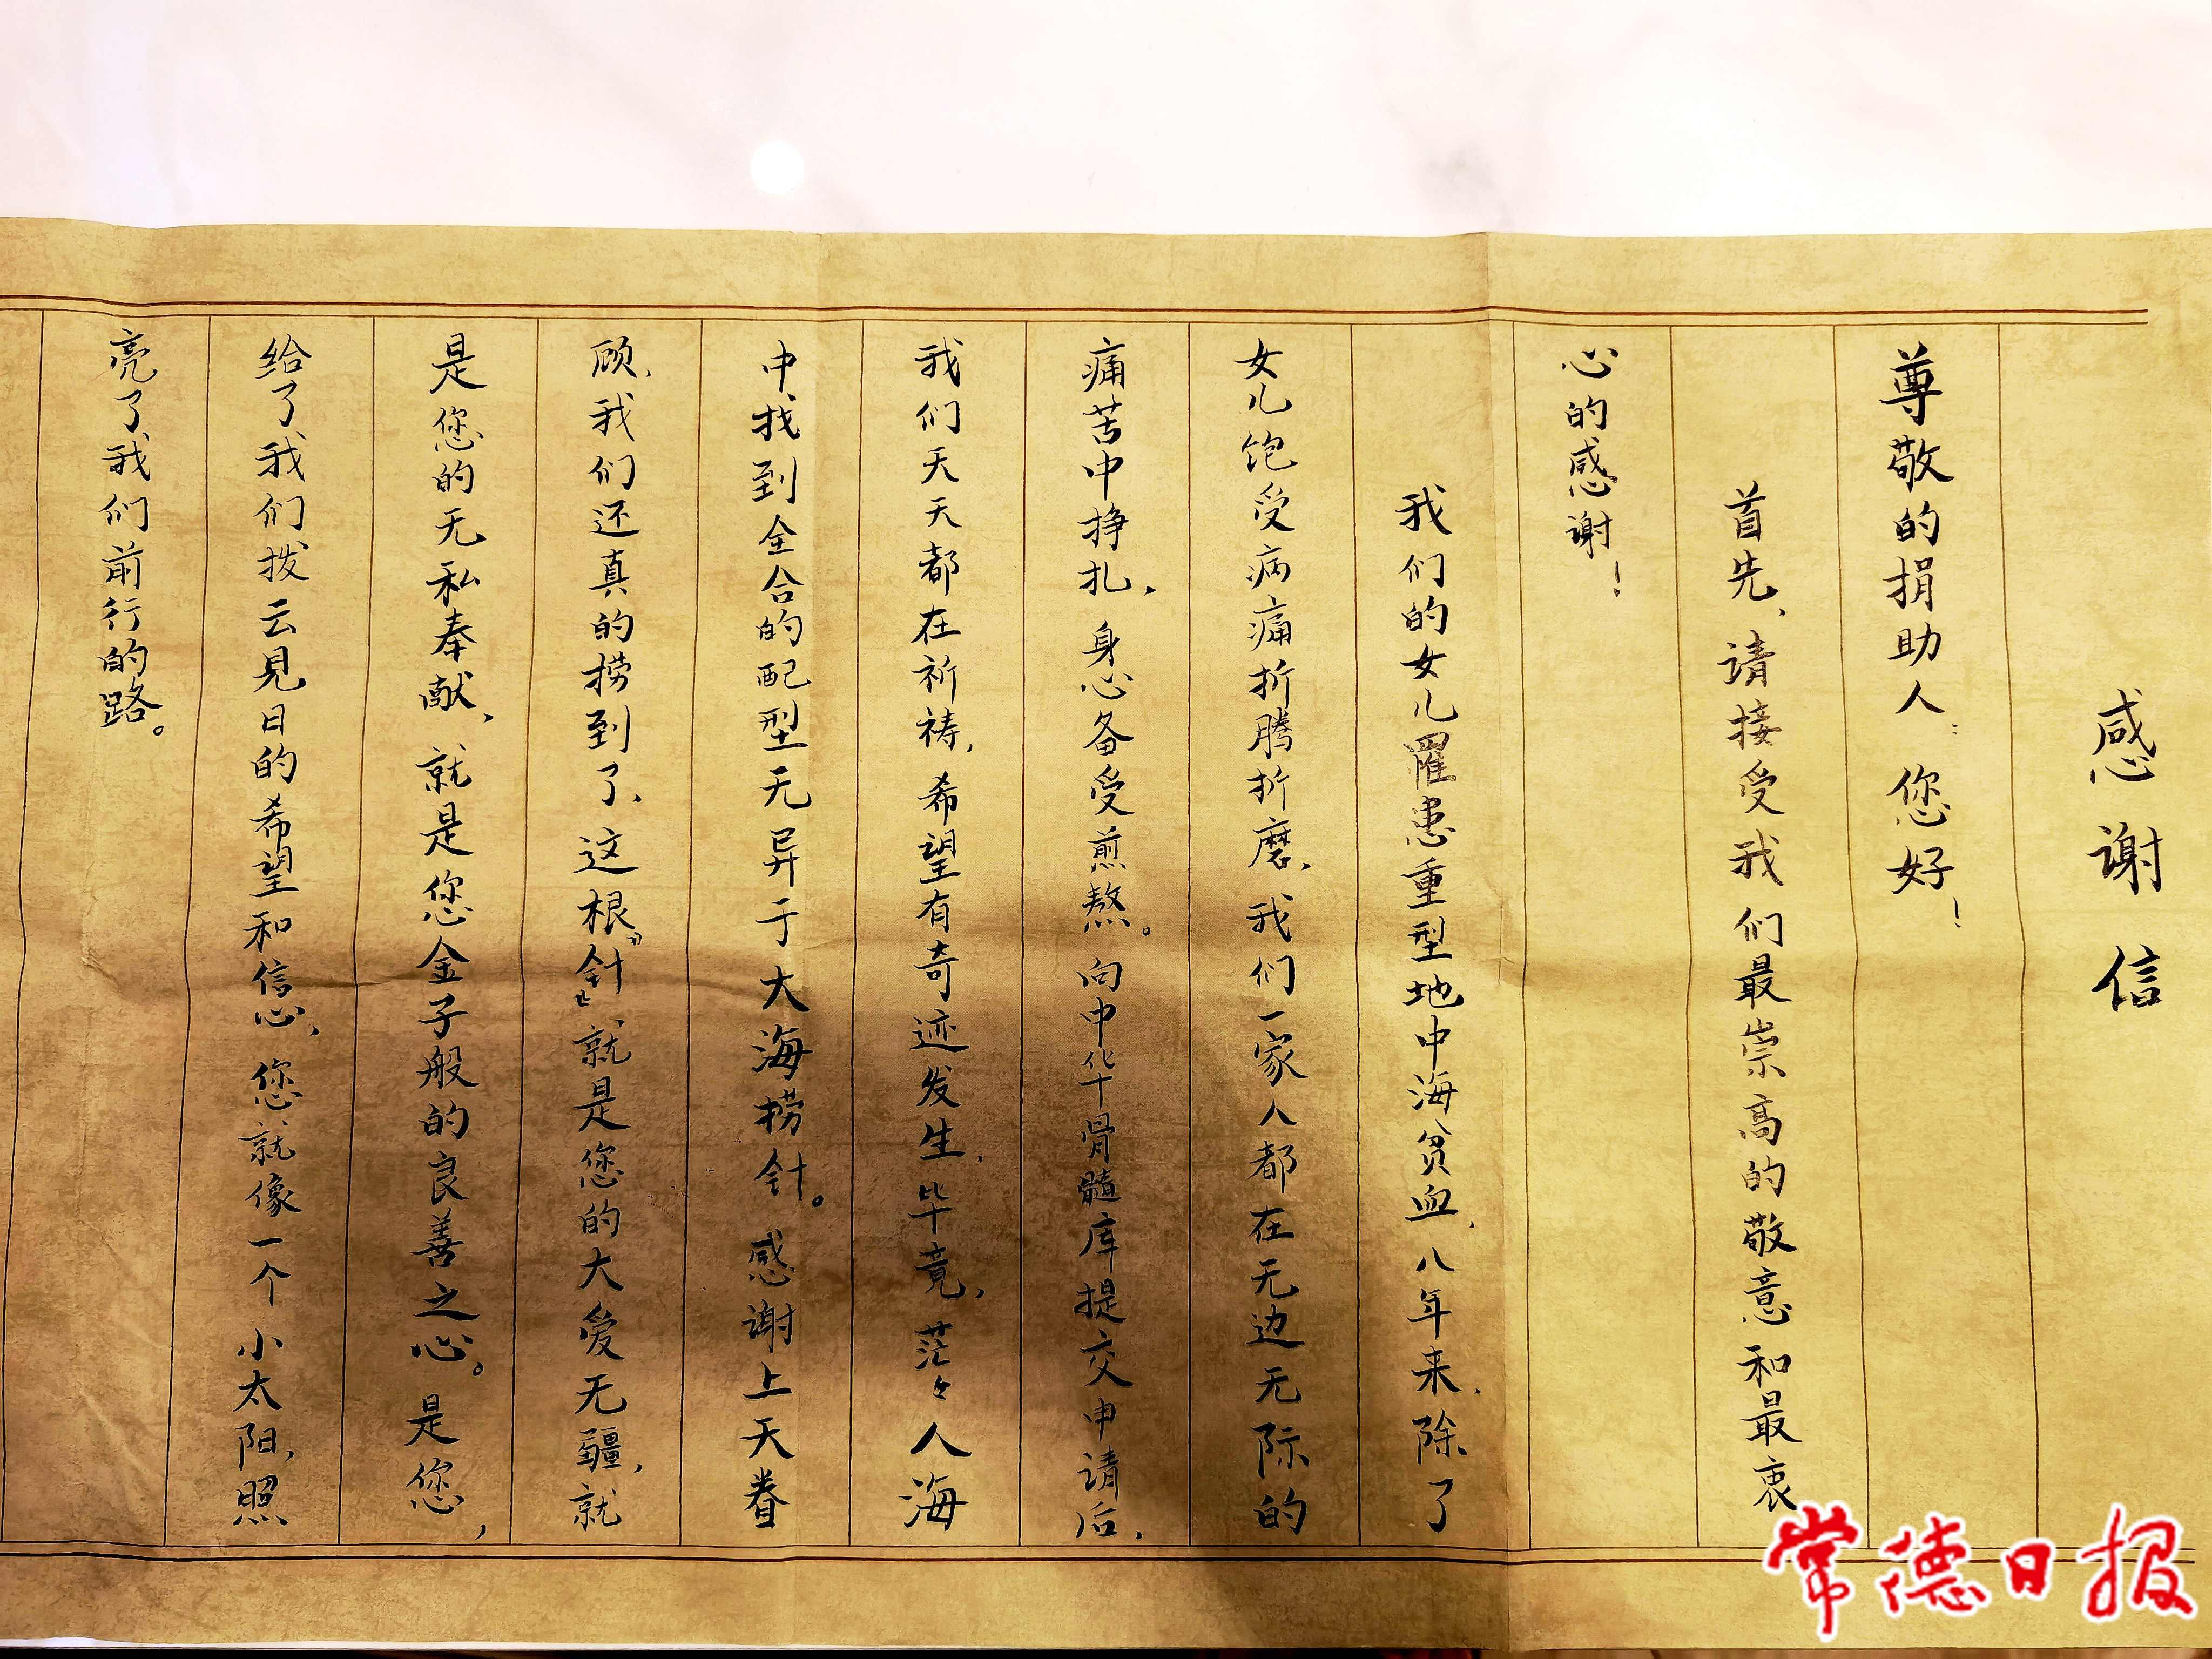 感谢信
尊敬的捐助人：您好！
首先，请接受我们最崇高的敬意和最衷
心的感谢！
我们的女儿罹患重型地中海贫血，八年来，除了
女儿饱受病痛折腾折磨，我们一家人都在无边无际的
痛苦中挣扎，身心备受煎熬。向中华骨髓库提交申请后，
我们天天都在祈祷，希望有奇迹发生，毕竟，茫々人海
中，找到全合的配型无异于大海捞针。感谢上天眷
顾，我们还真的捞到了，这根“针”，就是您的大爱无疆，就
是您的无私奉献，就是您金子般的良善之心。是您，
给了我们拨云见日的希望和信心，您就像一个小太阳，照
亮了我们前行的路。
常德日报